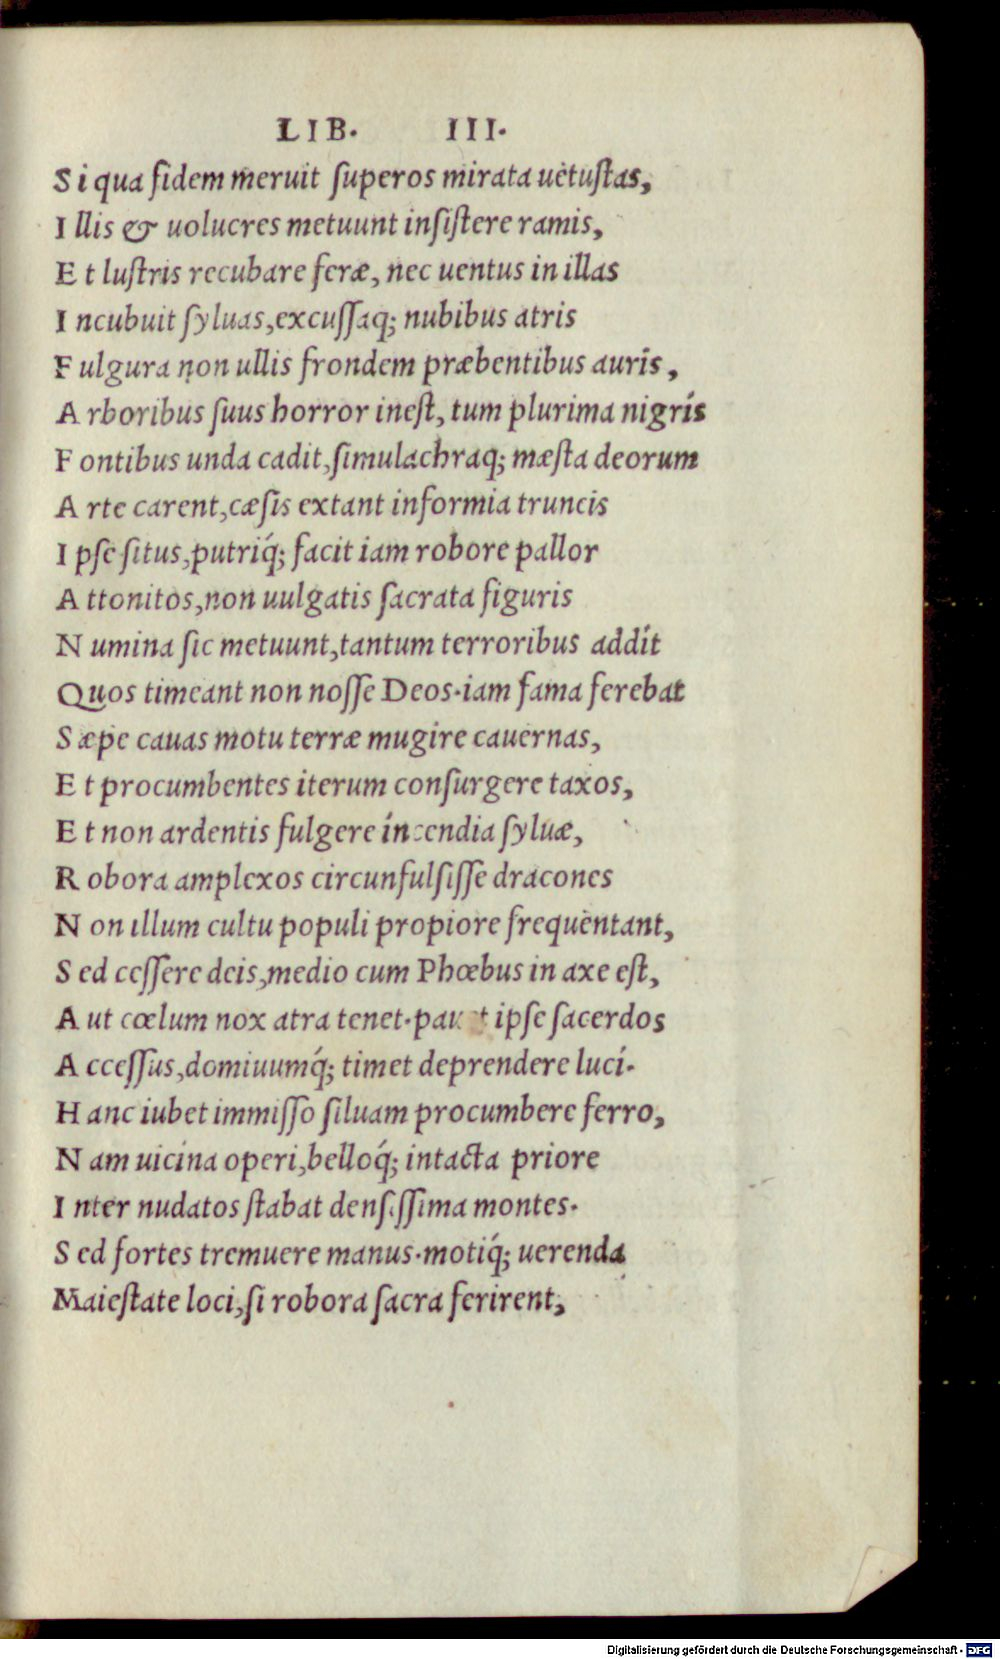 LIB. III.
Si qua fidem meruit ſuperos mirata uetuſtas,
Illis & uolucres metuunt inſiſtere ramis,
Et luſtris recubare feræ, nec uentus in illas
Incubuit ſyluas, excuſſaq; nubibus atris
Fulgura non ullis frondem præbentibus auris,
Arboribus ſuus horror ineſt, tum plurima nigris
Fontibus unda cadit, ſimulachraq; mæſta deorum
Arte carent, cæſis extant informia truncis
Ipſe ſitus, putriq́; facit iam robore pallor
Attonitos, non uulgatis ſacrata figuris
Numina ſic metuunt, tantum terroribus addit
Quos timeant non noſſe Deos. iam fama ferebat
Sæpe cauas motu terræ mugire cauernas,
Et procumbentes iterum conſurgere taxos,
Et non ardentis fulgere incendia ſyluæ,
Robora amplexos circunfulſiſſe dracones
Non illum cultu populi propiore frequentant,
Sed ceſſere deis, medio cum Phœbus in axe eſt,
Aut cœlum nox atra tenet. pauet ipſe ſacerdos
Acceſſus, domiuumq́; timet deprendere luci.
Hanc iubet immiſſo ſiluam procumbere ferro,
Nam uicina operi, belloq́; intacta priore
Inter nudatos ſtabat denſiſſima montes.
Sed fortes tremuere manus. motiq́; uerenda
Maieſtate loci, ſi robora ſacra ferirent,
Digitalisierung gefördert durch die Deutsche Forschungsgemeinschaft - DFG